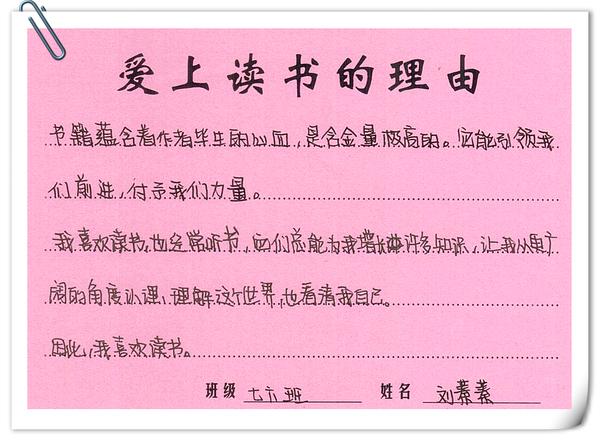 爱上读书的理由
书籍蕴含着作者毕生的心血，是含金量极高的。它能引领我
们前进，付予我们力量。
我喜欢读书，也经常听书，它们总能为我增长许多知识，让我从更广
阔的角度认理，理解这个世界，也看清我自己。
因此，我喜欢读书。
班级 七六班 姓名 刘蓁蓁